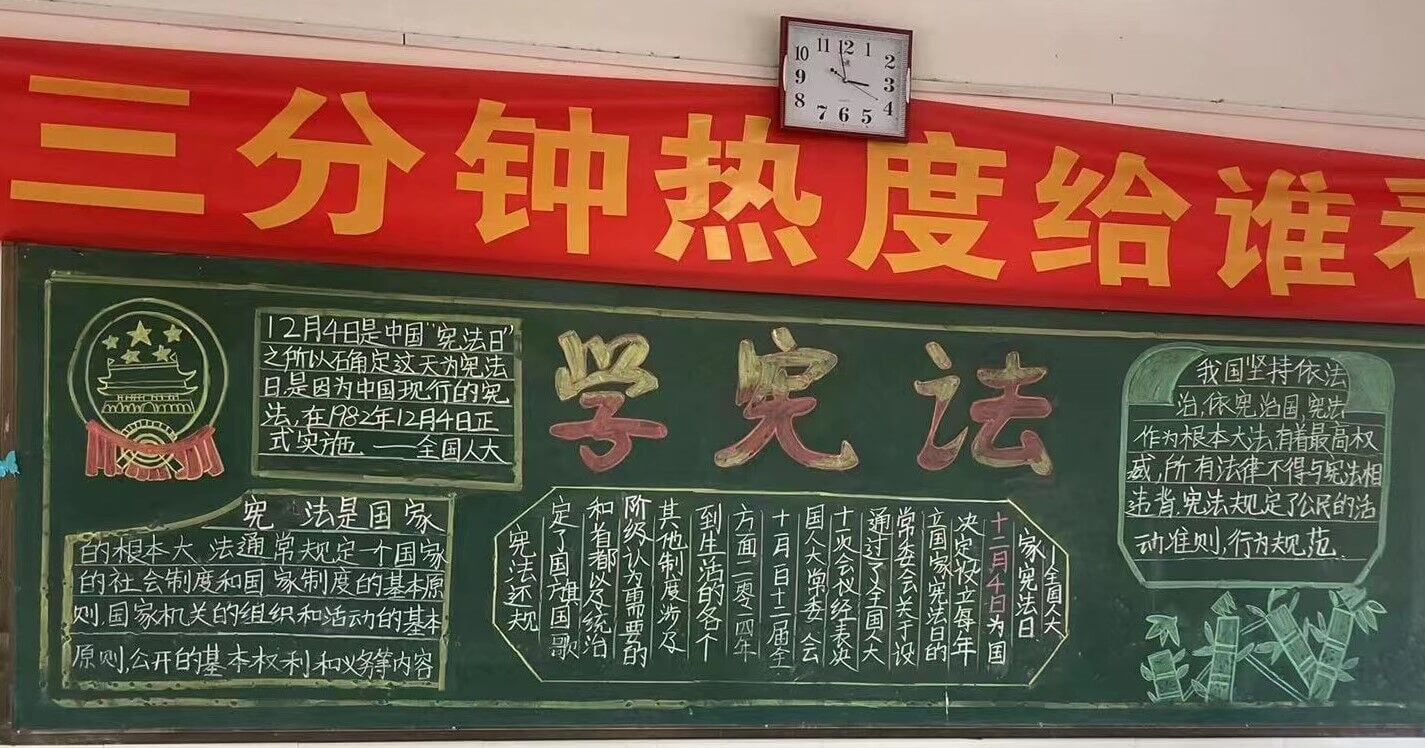 11 12 1
10 2
9 3
8 4
7 6 5
三分钟热度给谁看
12月4日是中国“宪法日”
之所以确定这天为宪法
日.是因为中国现行的宪
法,在1982年12月4日正
式实施. ——全国人大
学宪法
我国坚持依法
治,依宪治国,宪法
作为根本大法,有着最高权
威,所有法律不得与宪法相
违背.宪法规定了公民的活
动准则,行为规范.
宪 法是国家
的根本大 法通常规定一个国家
的社会制度和国家制度的基本原
则.国家机关的组织和活动的基本
原则,公开的基本权利和义务等内容
宪法还规
定了国旗国歌
和首都以及统治
阶级认为需要的
其他制度涉及
到生活的各个
方面二零四年
十月一日十二届全
国人大常委会
十次会议经表决
通过了全国人大
常委会关于设
立国家宪法日的
决定设立每年
十二月4日为国
家宪法日
——全国人大